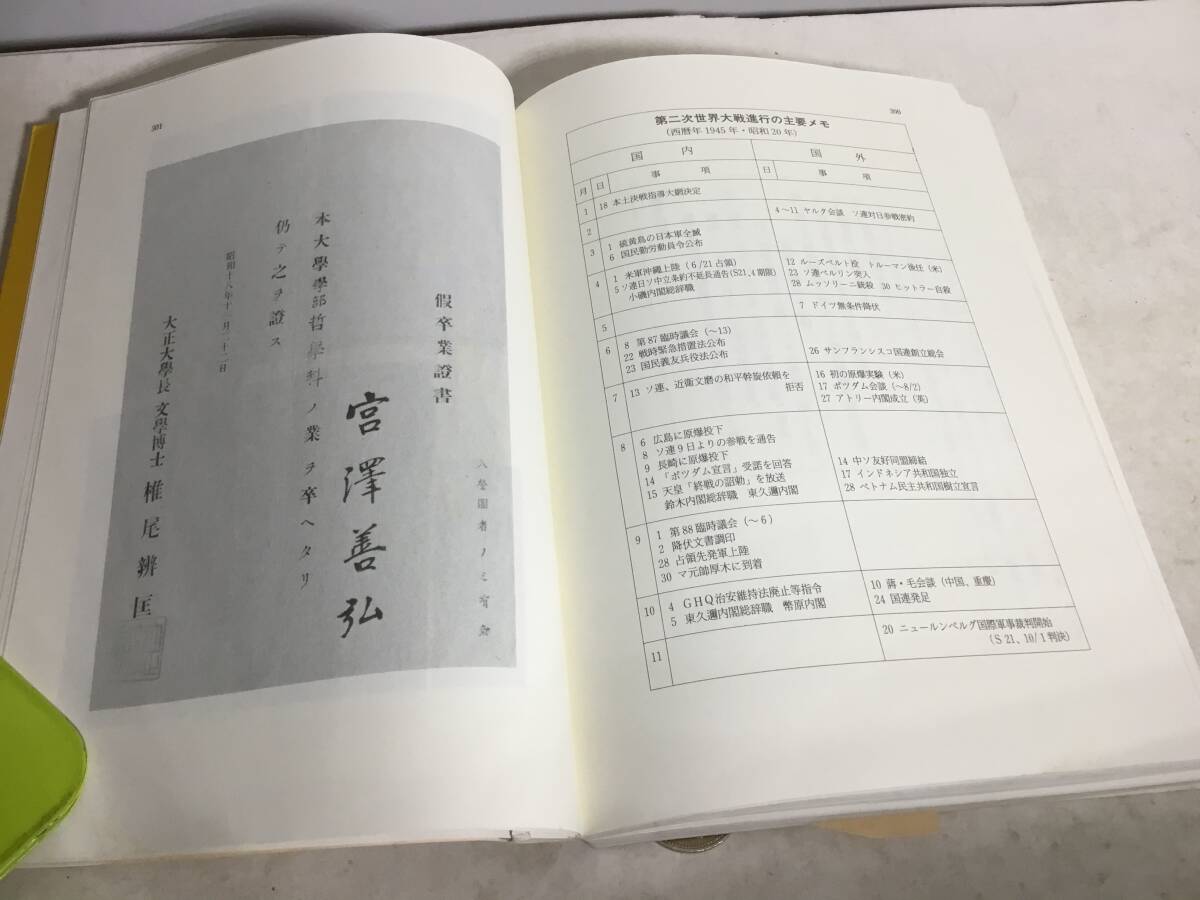 300
第二次世界大戦進行の主要メモ
(西暦年1945年・昭和20年)
国内 国外
月 日 事項 日 事項
1 18 本土決戦指導大綱決定
2 4〜11 ヤルタ会談 ソ連対日参戦密約
3 1 硫黄島の日本軍全滅
6 国民勤労動員令公布
4 1 米軍沖縄上陸(6/21占領) 12 ルーズベルト歿 トルーマン後任(米)
5 ソ連日ソ中立条約不延長通告(S21,4期限) 23 ソ連ベルリン突入
小磯内閣総辞職 28 ムッソリーニ銃殺 30 ヒットラー自殺
5 7 ドイツ無条件降伏
6 8 第87臨時議会(〜13)
22 戦時緊急措置法公布
23 国民義友兵役法公布 26 サンフランシスコ国連創立総会
7 13 ソ連、近衛文麿の和平幹旋依頼を 16 初の原爆実験(米)
拒否 17 ポツダム会談(〜8/2)
27 アトリー内閣成立(英)
8 6 広島に原爆投下
8 ソ連9日よりの参戦を通告
9 長崎に原爆投下
14 「ポツダム宣言」受諾を回答 14 中ソ友好同盟締結
15 天皇「終戦の詔勅」を放送 17 インドネシア共和国独立
鈴木内閣総辞職 東久邇内閣 28 ベトナム民主共和国樹立宣言
9 1 第88臨時議会(〜6)
2 降伏文書調印
28 占領先発軍上陸
30 マ元帥厚木に到着
10 4 GHQ治安維持法廃止等指令 10 蒋・毛会談(中国、重慶)
5 東久邇内閣総辞職 幣原内閣 24 国連発足
11 20 ニュールンベルグ国際軍事裁判開始
(S21、10/1判決)
301
入營困者ノミ有効
假卒業證書
宮澤善弘
本大學學部哲學科ノ業ヲ卒ヘタリ
仍テ之ヲ證ス
昭和十八年十一月二十二日
大正大學長文學博士 椎尾辨匡